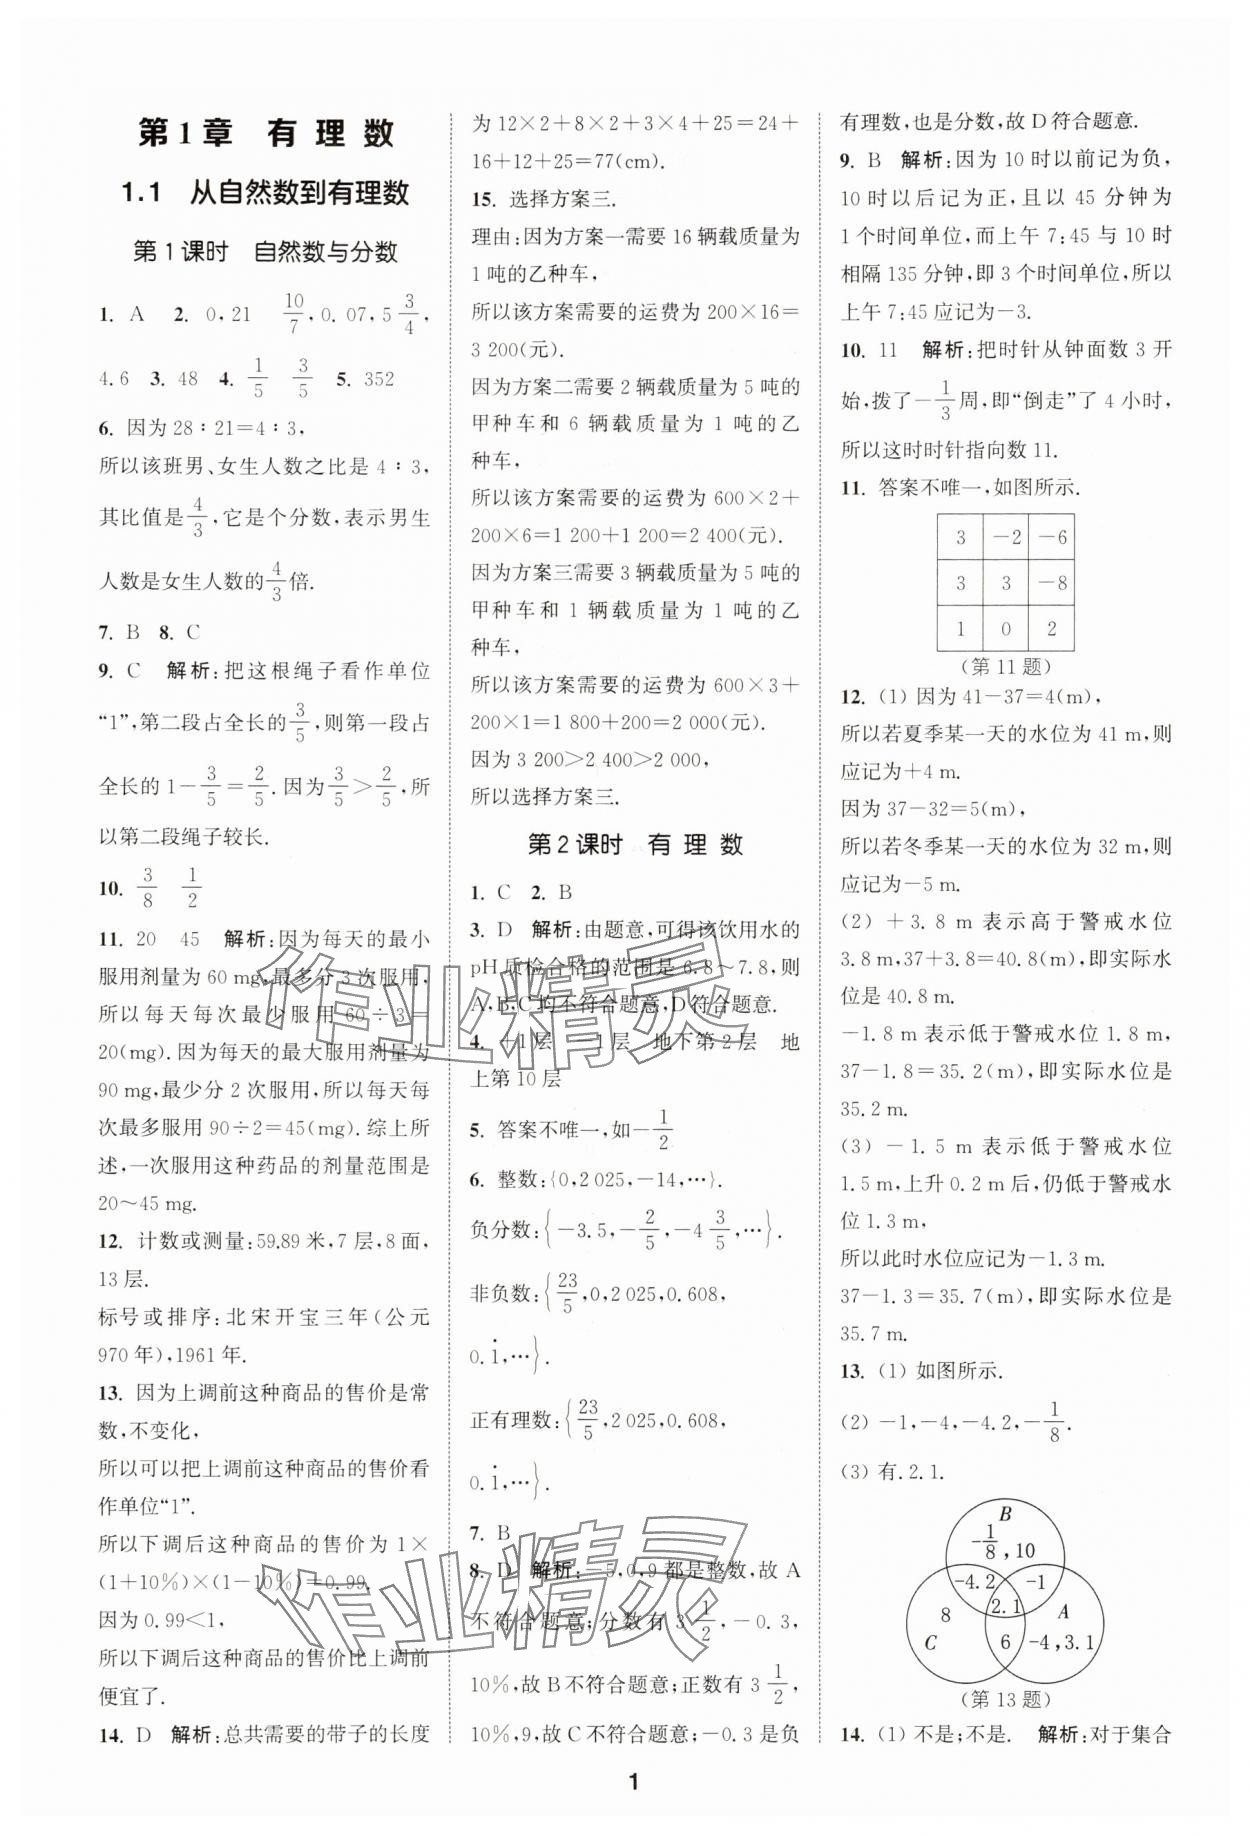 第1章 有理数
1.1 从自然数到有理数
第1课时 自然数与分数
1. A 2. 0,21 10/7,0.07,5 3/4,
4.6 3. 48 4. 1/5 3/5 5. 352
6. 因为28∶21=4∶3,
所以该班男、女生人数之比是4∶3,
其比值是4/3,它是个分数,表示男生
人数是女生人数的4/3倍.
7. B 8. C
9. C 解析:把这根绳子看作单位
“1”,第二段占全长的3/5,则第一段占
全长的1-3/5=2/5.因为3/5>2/5,所
以第二段绳子较长.
10. 3/8 1/2
11. 20 45 解析:因为每天的最小
服用剂量为60 mg,最多分3次服用,
所以每天每次最少服用60÷3=
20(mg).因为每天的最大服用剂量为
90 mg,最少分2次服用,所以每天每
次最多服用90÷2=45(mg).综上所
述,一次服用这种药品的剂量范围是
20~45 mg.
12. 计数或测量:59.89米,7层,8面,
13层.
标号或排序:北宋开宝三年(公元
970年),1961年.
13. 因为上调前这种商品的售价是常
数,不变化,
所以可以把上调前这种商品的售价看
作单位“1”.
所以下调后这种商品的售价为1×
(1+10%)×(1-10%)=0.99.
因为0.99<1,
所以下调后这种商品的售价比上调前
便宜了.
14. D 解析:总共需要的带子的长度
为12×2+8×2+3×4+25=24+
16+12+25=77(cm).
15. 选择方案三.
理由:因为方案一需要16辆载质量为
1吨的乙种车,
所以该方案需要的运费为200×16=
3 200(元).
因为方案二需要2辆载质量为5吨的
甲种车和6辆载质量为1吨的乙
种车,
所以该方案需要的运费为600×2+
200×6=1 200+1 200=2 400(元).
因为方案三需要3辆载质量为5吨的
甲种车和1辆载质量为1吨的乙
种车,
所以该方案需要的运费为600×3+
200×1=1 800+200=2 000(元).
因为3 200>2 400>2 000,
所以选择方案三.
第2课时 有理数
1. C 2. B
3. D 解析:由题意,可得该饮用水的
pH质检合格的范围是6.8~7.8,则
A,B,C均不符合题意,D符合题意.
4. +1层 -1层 地下第2层 地
上第10层
5. 答案不唯一,如-1/2
6. 整数:{0,2 025,-14,…}.
负分数:{-3.5,-2/5,-4 3/5,…}.
非负数:{23/5,0,2 025,0.608,
0.1̇,…}.
正有理数:{23/5,2 025,0.608,
0.1̇,…}.
7. B
8. D 解析:-5,0,9都是整数,故A
不符合题意;分数有3 1/2,-0.3,
10%,故B不符合题意;正数有3 1/2,
10%,9,故C不符合题意;-0.3是负
有理数,也是分数,故D符合题意.
9. B 解析:因为10时以前记为负,
10时以后记为正,且以45分钟为
1个时间单位,而上午7:45与10时
相隔135分钟,即3个时间单位,所以
上午7:45应记为-3.
10. 11 解析:把时针从钟面数3开
始,拨了-1/3周,即“倒走”了4小时,
所以这时时针指向数11.
11. 答案不唯一,如图所示.
3 -2 -6
3 3 -8
1 0 2
(第11题)
12. (1) 因为41-37=4(m),
所以若夏季某一天的水位为41 m,则
应记为+4 m.
因为37-32=5(m),
所以若冬季某一天的水位为32 m,则
应记为-5 m.
(2) +3.8 m表示高于警戒水位
3.8 m,37+3.8=40.8(m),即实际水
位是40.8 m.
-1.8 m表示低于警戒水位1.8 m,
37-1.8=35.2(m),即实际水位是
35.2 m.
(3) -1.5 m表示低于警戒水位
1.5 m,上升0.2 m后,仍低于警戒水
位1.3 m,
所以此时水位应记为-1.3 m.
37-1.3=35.7(m),即实际水位是
35.7 m.
13. (1) 如图所示.
(2) -1,-4,-4.2,-1/8.
(3) 有.2.1.
B
-1/8,10
-4.2 -1
2.1
8 A
C 6 -4,3.1
(第13题)
14. (1) 不是;不是. 解析:对于集合
1
作业精灵
作业精灵